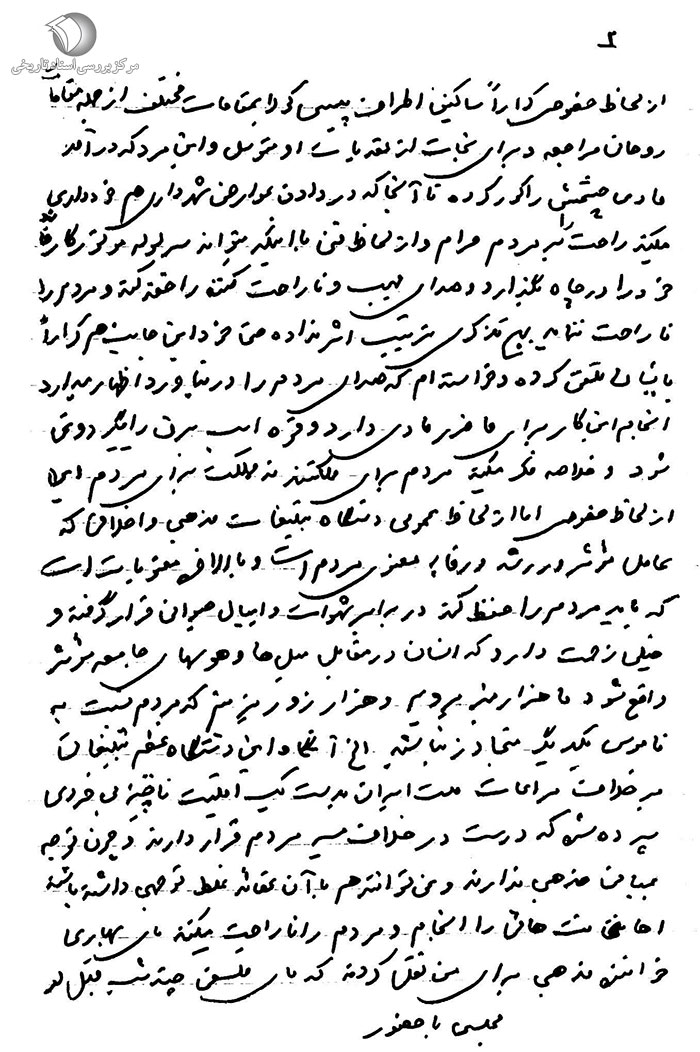 ۲
مرکز بررسی اسناد تاریخی
از لحاظ خصوصی کراراً ساکنین اطراف پپسی کولا بمقامات مختلف از جمله مقامات
روحانی مراجعه و برای نجات از تعدیات او متوسل و این مرد که درآمد
مادی چشمش را کور کرده تا آنجا که در دادن عوارض شهرداری هم خودداری
میکند راحت را بر مردم حرام و از لحاظ فنی با اینکه میتواند سر لوله موتور کارخانه
خود را در چاه بگذارد و صدای مهیب و ناراحت کننده را خفه کند و مردم را
ناراحت ننماید بهیچ تذکری ترتیب اثر نداده حتی خود اینجانب هم کراراً
بایشان تلفن کرده و خواسته‌ام که صدای مردم را در نیاورد اظهار میدارد
انجام این کار برای ما ضرر مادی دارد و قوه اسب برق را
شود و خلاصه فکر میکند مردم برای مملکتند نه مملکت برای مردم این
از لحاظ خصوصی اما از لحاظ عمومی دستگاه تبلیغات مذهبی و اخلاقی که
عامل مؤثر در رشد و رفاه معنوی مردم است و بالاخره معنویات است
که باید مردم را حفظ کند در برابر شهوات و امیال حیوانی قرار گرفته و
خیلی زحمت دارد که انسان در مقابل میل‌ها و هوسهای جامعه مؤثر
واقع شود ما هزار منبر برویم و هزار زور بزنیم که مردم نسبت به
ناموس یکدیگر متجاوز نباشند الخ آنجا و این دستگاه عظیم تبلیغات
بر خلاف مراعات ملت ایران بدست یک اقلیت ناچیز بی‌خردی
سپرده شده که درست در خلاف مسیر مردم قرار دارند و چون توجه
بمبانی مذهبی ندارند و نمی‌توانند هم با آن عقائد غلط توجهی داشته باشند
را انجام و مردم را ناراحت میکنند آقای بهاری
خواننده مذهبی برای من نقل کردند که آقای فلسفی چند شب قبل در
مجلسی با حضور